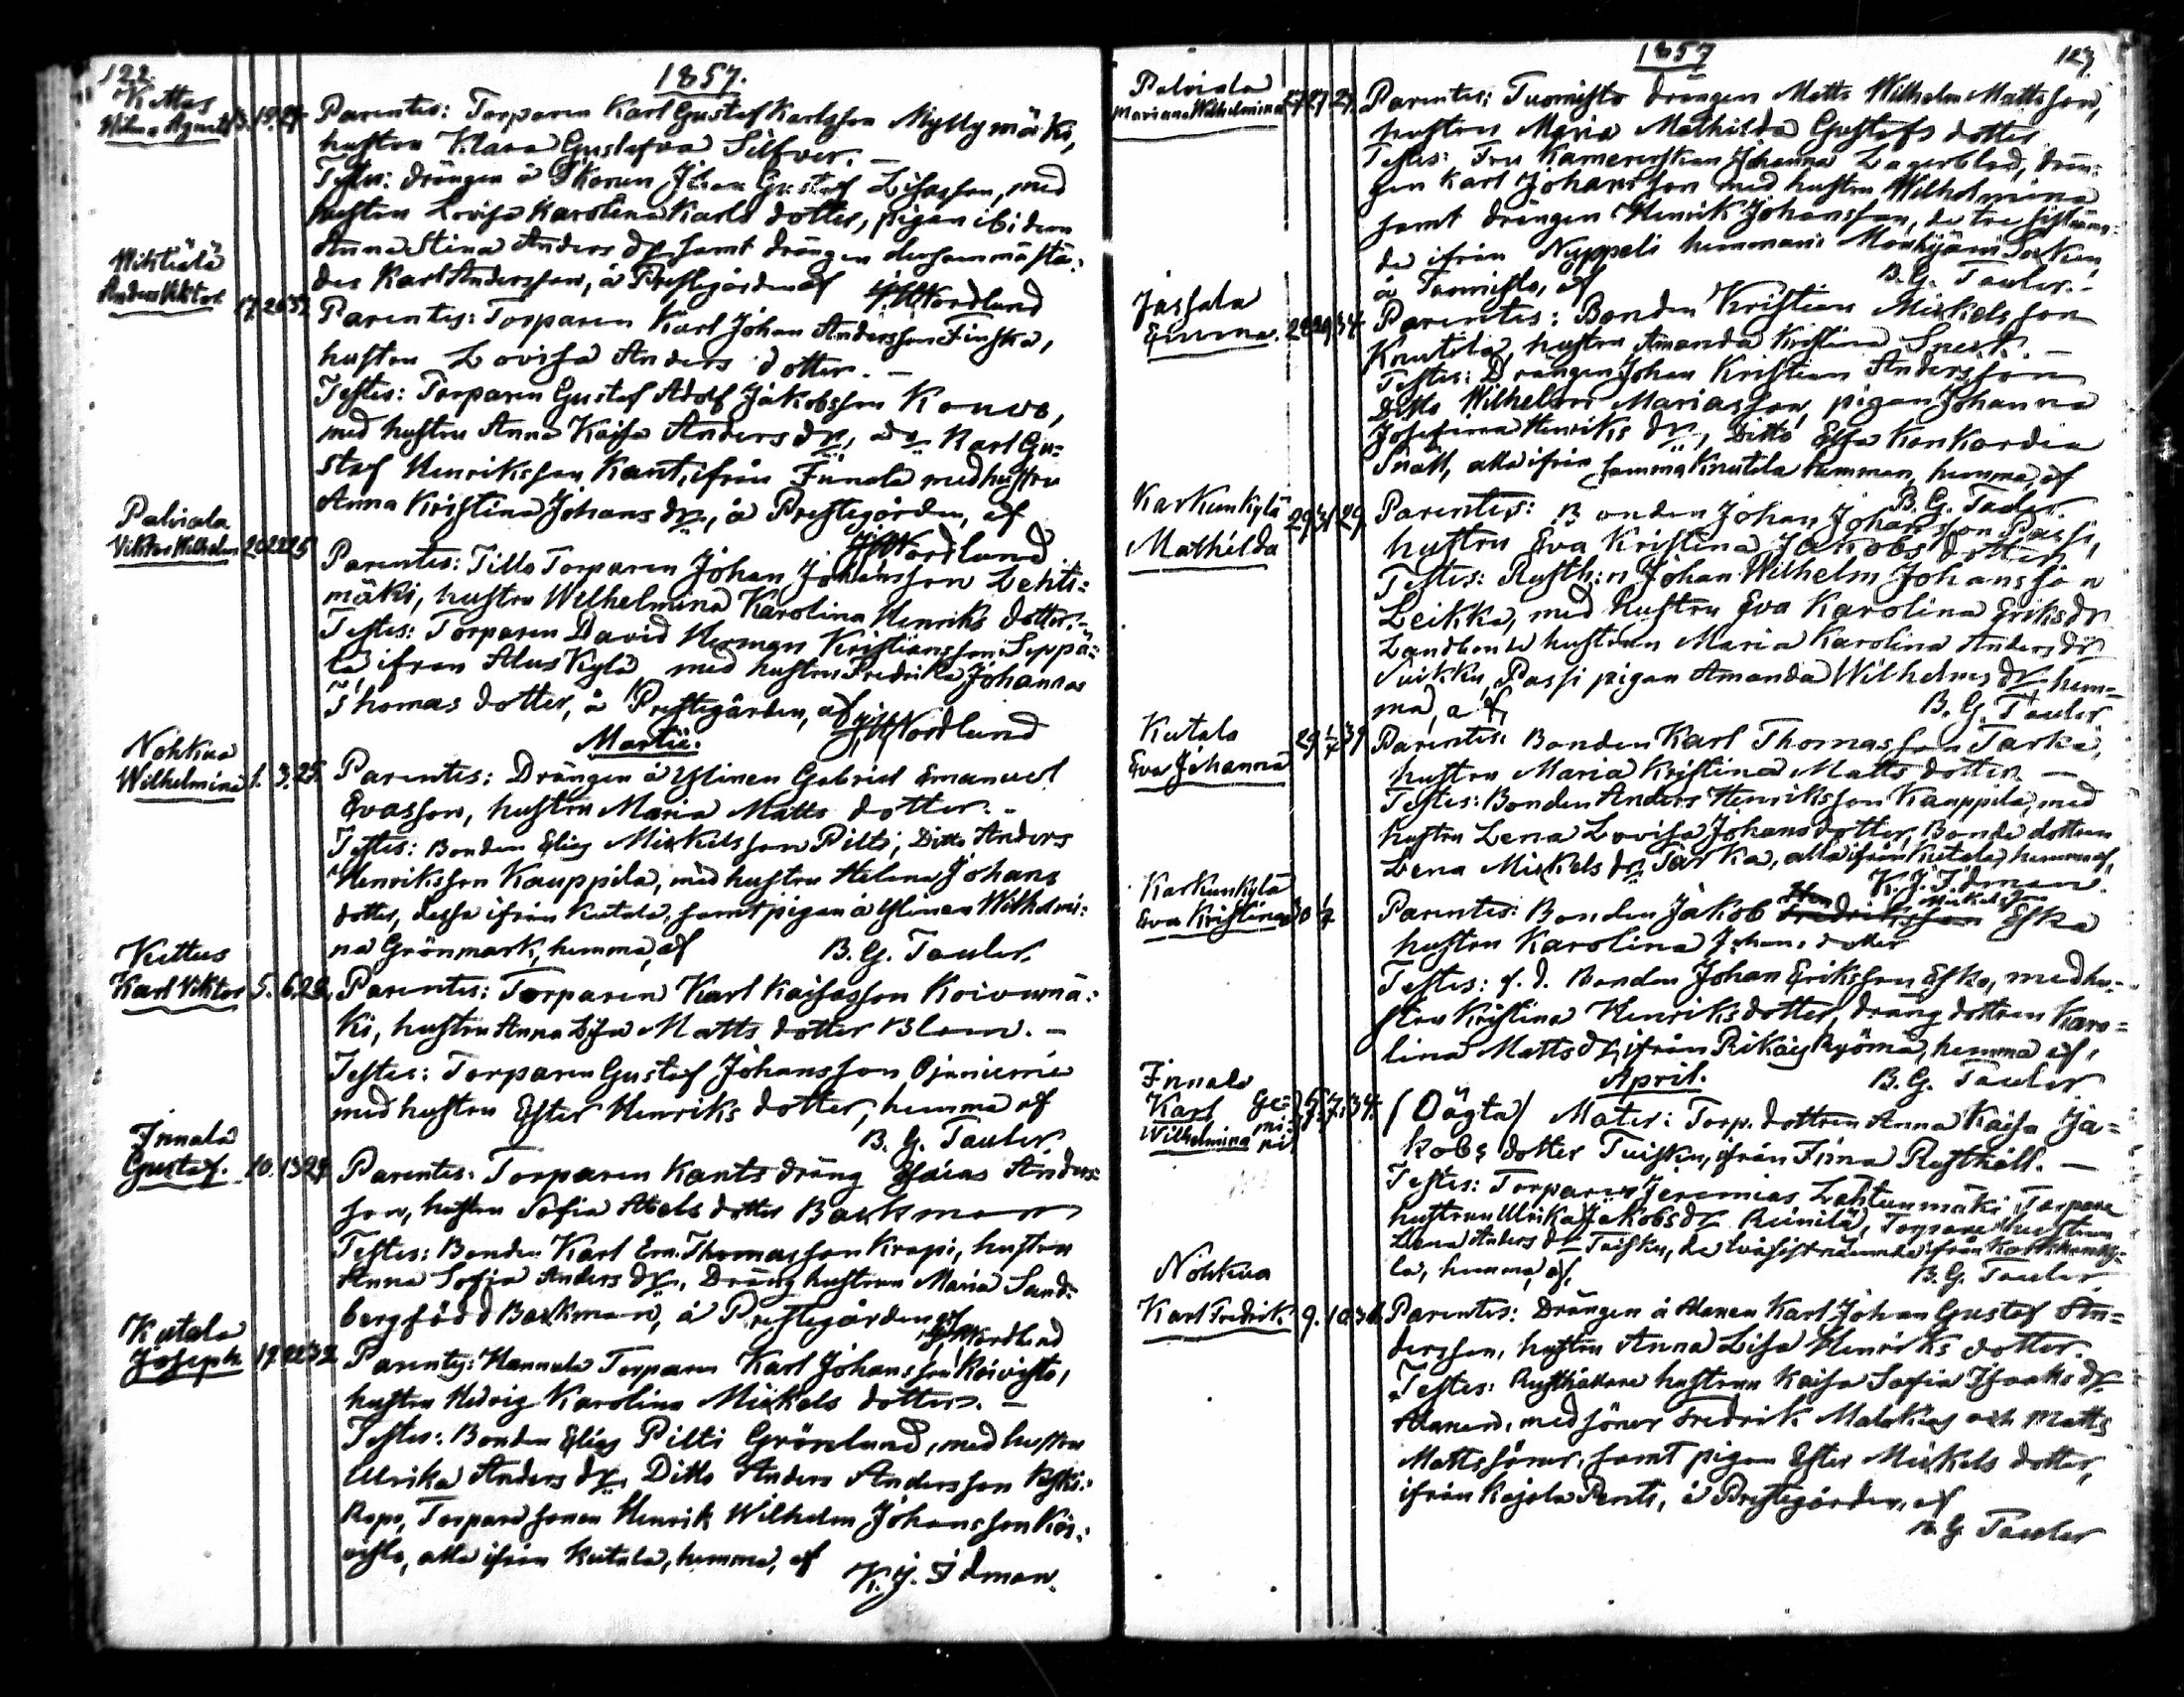 122.
1857.
Kettus
Wilma Agneta 13. 19. 27.
Parentes: Torparen Karl Gustaf Karlsson Myllymäki,
hustru Klara Gustafva Silfver. –
Testes: drängen å Skonen Johan Gustaf Lisasson, med
hustru Lovisa Karolina Karls dotter, pigan ibidem
Anna Stina Anders dr samt drängen dersammastä:
des Karl Andersson, å Prestegården af
Nordlund
Wihtiälä
Anders Viktor 17. 20 33.
Parentes: Torparen Karl Johan Andersson Finska,
hustru Lovisa Anders dotter. –
Testes: Torparen Gustaf Adolf Jakobsson Kouvo,
med hustru Anna Kajsa Anders dr, Karl Gu=
staf Henriksson Kant, ifrån Innala med hustru
Anna Kristina Johans dr, å Prestegården, af
Nordlund
Palviala
Viktor Wilhelm 20 22 25
Parentes: Tillo Torparen Johan Johansson Lehti=
mäki, hustru Wilhelmina Karolina Henriks dotter. –
Testes: Torparen David Herman Kristiansson Seppä=
lä, ifran Aluskylä med hustru Fredrika Johanna
Thomas dotter, å Prestegården, af
Nordlund
Martii.
Nohkua
Wilhelmina 1. 3. 25.
Parentes: Drängen å Ylinen Gabriel Emanuel
Evasson, hustru Maria Matts dotter. –
Testes: Bonden Elias Mickelsson Pilti, Ditto Anders
Henriksson Kauppila, med hustru Helena Johans
dotter, dessa ifrån Kutala, samt pigan å Ylinen Wilhelmi:
na Grönmark, hemma, af
B. G. Tauler.
Kettus
Karl Viktor 5. 6. 29.
Parentes: Torparen Karl Kajsasson Koivumä:
ki, hustru Anna Lisa Matts dotter Blom. –
Testes: Torparen Gustaf Johansson Ojaniemi
med hustru Ester Henriks dotter, hemma af
B. G. Tauler
Innala
Gustaf. 10. 13 27
Parentes: Torparen Kants dräng Esaias Anders
son, hustru Sofia Abels dotter Backman
Testes: Bonden Karl Em. Thomasson Krapi, hustru
Anna Sofia Anders dr, Dräng hustrun Maria Sand:
berg född Backman, å Prestegården af
Nordlund
Kutala
Joseph 19 22 32
Parentes: Hannula Torparen Karl Johansson Koivisto,
hustru Hedvig Karolina Mickels dotter. –
Testes: Bonden Elias Pilti Grönlund, med hustru
Ulrika Anders dr. Ditto Anders Andersson Yski:
Repo, Torpare sonen Henrik Wilhelm Johansson Koi:
visto, alla ifrån Kutala, hemma, af
K. J. Idman.
1857
123
Palviala
Mariana Wilhelmina 27 27 27.
Parentes: Tuomisto drängen Matts Wilhelm Mattsson,
hustru Maria Mathilda Gustafs dotter
Testes: Fru Kamererskan Johanna Lagerblad, drän:
gen Karl Johansson med hustru Wilhelmina
samt drängen Henrik Johansson, de tre sistnäm:
de ifrån Nuppeli hemman i Mouhijärvi Socken,
å Tuomisto, af
B. G. Tauler. –
Jassala
Emma. 28 29 34.
Parentes: Bonden Kristian Mickelsson
Knutila, hustru Amanda Kristina Snell. –
Testes: Drängen Johan Kristian Andersson
Ditto Wilhelm Mariasson, pigan Johanna
Josefina Henriks dr, Ditto Elsa Konkordia
Snäll, alla ifrån samma Knutila hemman, hemma, af
B. G. Tauler.
Karkunkylä
Mathilda 29 31 29.
Parentes: Bonden Johan Johansson Passi,
hustru Eva Kristina Jakobs dotter
Testes: Rusth:n Johan Wilhelm Johansson
Leikka, med hustru Eva Karolina Eriks dr
Landbonde hustrun Maria Karolina Anders dr
Suikku, Passi pigan Amanda Wilhelms dr hem=
ma, af
B. G. Tauler
Kutala
Eva Johanna 29 1/7 39
Parentes: Bonden Karl Thomasson Tarka,
hustru Maria Kristina Matts dotter. –
Testes: Bonden Anders Henriksson Kauppila, med
hustru Lena Lovisa Johans dotter, Bonde dottren
Lena Mickels dr Tarka, alla ifrån Kutala, hemma af,
K. J. Idman.
Karkunkylä
Eva Kristina
Parentes: Bonden Jakob Fredriksson Mickelsson Esko
hustru Karolina Johans dotter
Testes: f. d. Bonden Johan Eriksson Esko, med hu:
stru Kristina Henriks dotter, dräng dottren Karo=
lina Matts dr, ifrån Rikais Kyömä, hemma af,
B. G. Tauler
April.
Innala
Karl
Wilhelmina
Ge:
mi:
ni
7. 34.
(Oägta) Mater: Torp. dottren Anna Kaisa Ja=
kobs dotter Tuisku, ifrån Finna Rusthåll. –
Testes: Torparen Jeremias Lahtuumäki, Torpare
hustrun Ulrika Jakobs dr Reinilä, Torpare hustrun
Lena Anders dr Tuisku, de två sistnämnda ifrån Karkunky=
lä, hemma, af,
B. G. Tauler
Nohkua
Karl Fredrik 9. 10 36.
Parentes: Drängen å Alanen Karl Johan Gustaf An=
dersson, hustru Anna Lisa Henriks dotter.
Testes: Rusthållare hustrun Kaisa Sofia Isaaks dr
Alanen, med söner Fredrik Malakias och Matts
Matts söner, samt pigan Ester Mickels dotter,
ifrån Kajala Pento, å Prestegården, af
B. G. Tauler